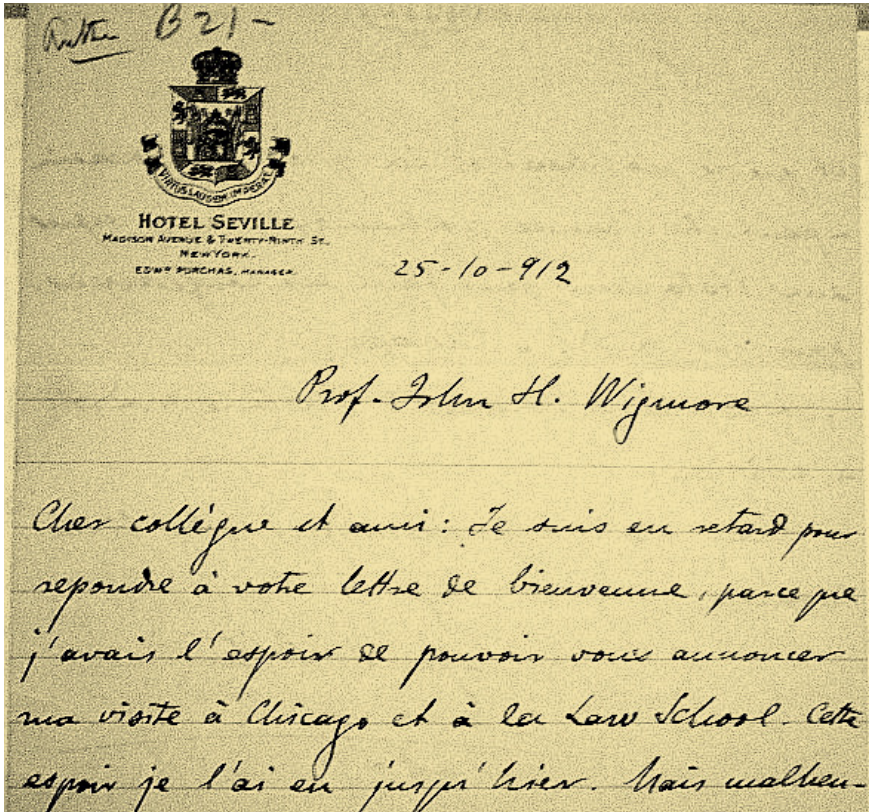 B 21-
VIRTUS LAUDEM IMPERAT
HOTEL SEVILLE
MADISON AVENUE & TWENTY-NINTH ST.
NEW YORK.
EDWD PURCHAS, MANAGER.
25-10-912
Prof. John H. Wigmore
Cher collégue et ami: Je suis en retard pour
repondre à votre lettre de bienvenue, parce que
j'avais l'espoir de pouvoir vous annoncer
ma visite à Chicago et à la Law School. Cette
espoir je l'ai eu jusqu'hier. Mais malheu-